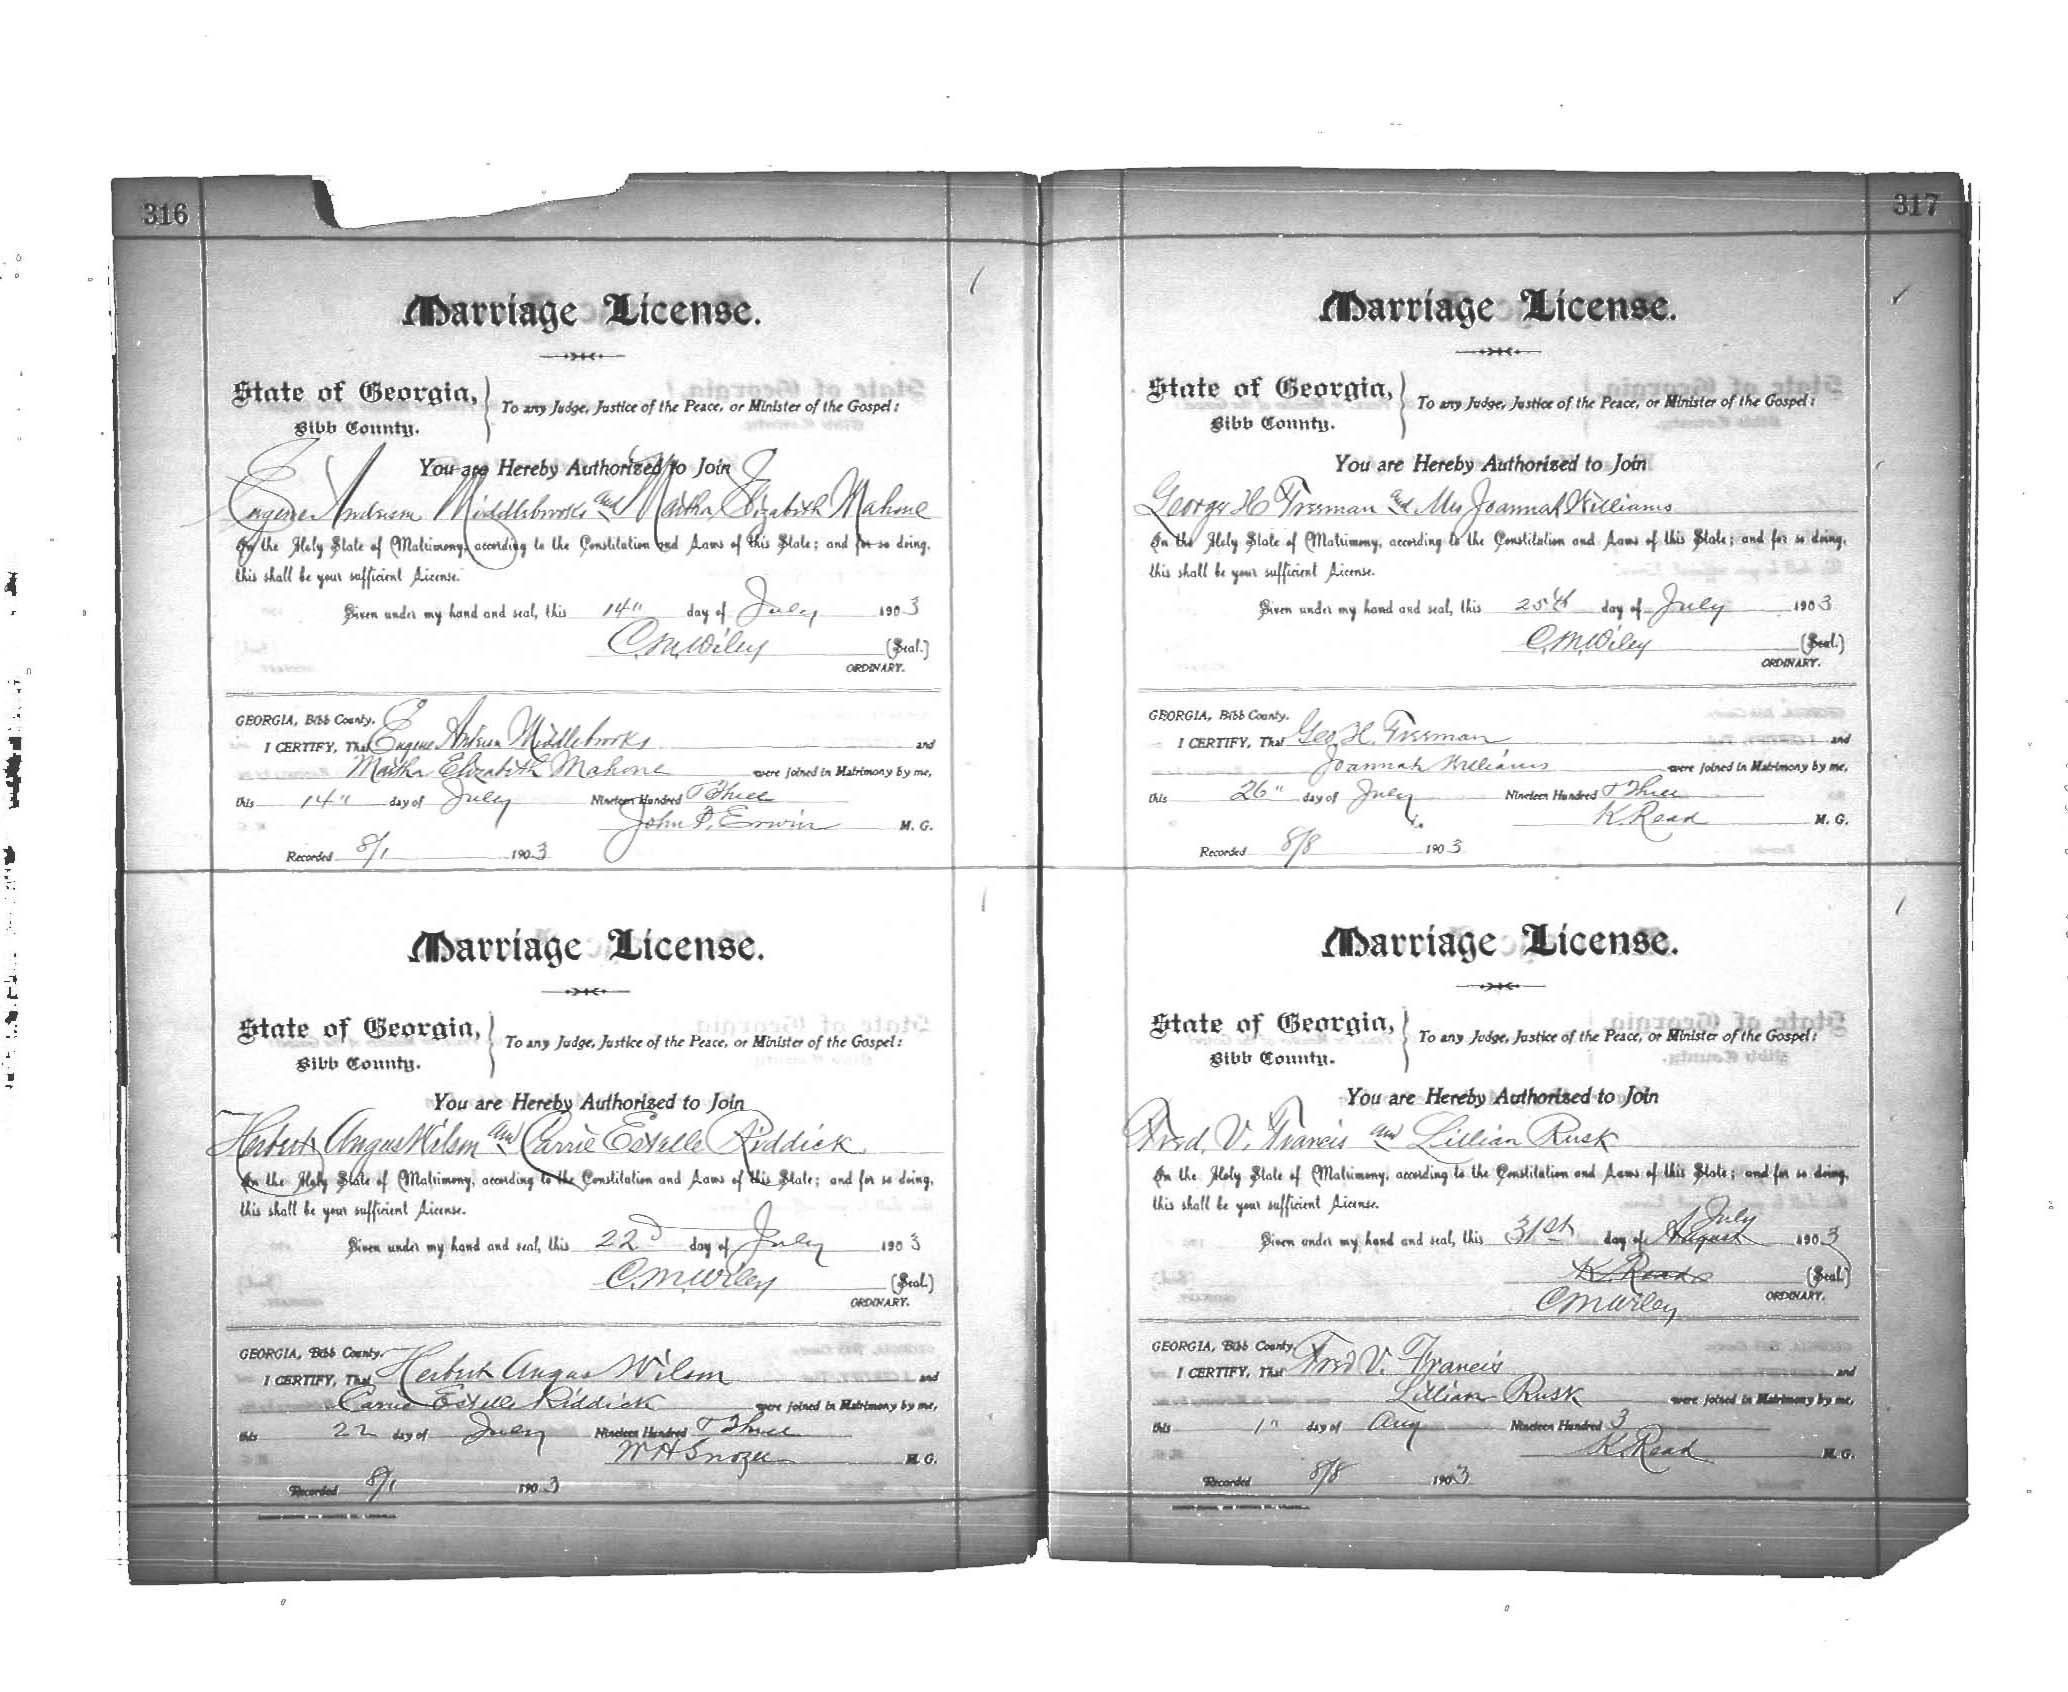 316
Marriage License.
State of Georgia,
Bibb County.
To any Judge, Justice of the Peace, or Minister of the Gospel:
You are Hereby Authorized to Join
Eugene Anderson Middlebrooks and Martha Elizabeth Mahone
In the Holy State of Matrimony, according to the Constitution and Laws of this State; and for so doing,
this shall be your sufficient License.
Given under my hand and seal, this 14" day of July 1903
C. M. Wiley (Seal.)
ORDINARY.
GEORGIA, Bibb County.
I CERTIFY, That Eugene Anderson Middlebrooks and
Martha Elizabeth Mahone were joined in Matrimony by me,
this 14" day of July Nineteen Hundred Three
John P. Erwin M. G.
Recorded 8/1 1903
Marriage License.
State of Georgia,
Bibb County.
To any Judge, Justice of the Peace, or Minister of the Gospel:
You are Hereby Authorized to Join
Herbert Angus Wilson and Carrie Estelle Riddick
In the Holy State of Matrimony, according to the Constitution and Laws of this State; and for so doing,
this shall be your sufficient License.
Given under my hand and seal, this 22d day of July 1903
C. M. Wiley (Seal.)
ORDINARY.
GEORGIA, Bibb County.
I CERTIFY, That Herbert Angus Wilson and
Carrie Estelle Riddick were joined in Matrimony by me,
this 22 day of July Nineteen Hundred Three
W H M. G.
Recorded 8/1 1903
317
Marriage License.
State of Georgia,
Bibb County.
To any Judge, Justice of the Peace, or Minister of the Gospel:
You are Hereby Authorized to Join
George H Freeman and Mrs Joannah Williams
In the Holy State of Matrimony, according to the Constitution and Laws of this State; and for so doing,
this shall be your sufficient License.
Given under my hand and seal, this 25th day of July 1903
C. M. Wiley (Seal.)
ORDINARY.
GEORGIA, Bibb County.
I CERTIFY, That Geo H. Freeman and
Joannah Williams were joined in Matrimony by me,
this 26" day of July Nineteen Hundred Three
K. Read M. G.
Recorded 8/8 1903
Marriage License.
State of Georgia,
Bibb County.
To any Judge, Justice of the Peace, or Minister of the Gospel:
You are Hereby Authorized to Join
Fred. V. Francis and Lillian Rusk
In the Holy State of Matrimony, according to the Constitution and Laws of this State; and for so doing,
this shall be your sufficient License.
July
Given under my hand and seal, this 31st day of August 1903
K. Read (Seal.)
C M Wiley ORDINARY.
GEORGIA, Bibb County.
I CERTIFY, That Fred V. Francis and
Lillian Rusk were joined in Matrimony by me,
this 1" day of Aug Nineteen Hundred 3
K. Read M. G.
Recorded 8/8 1903